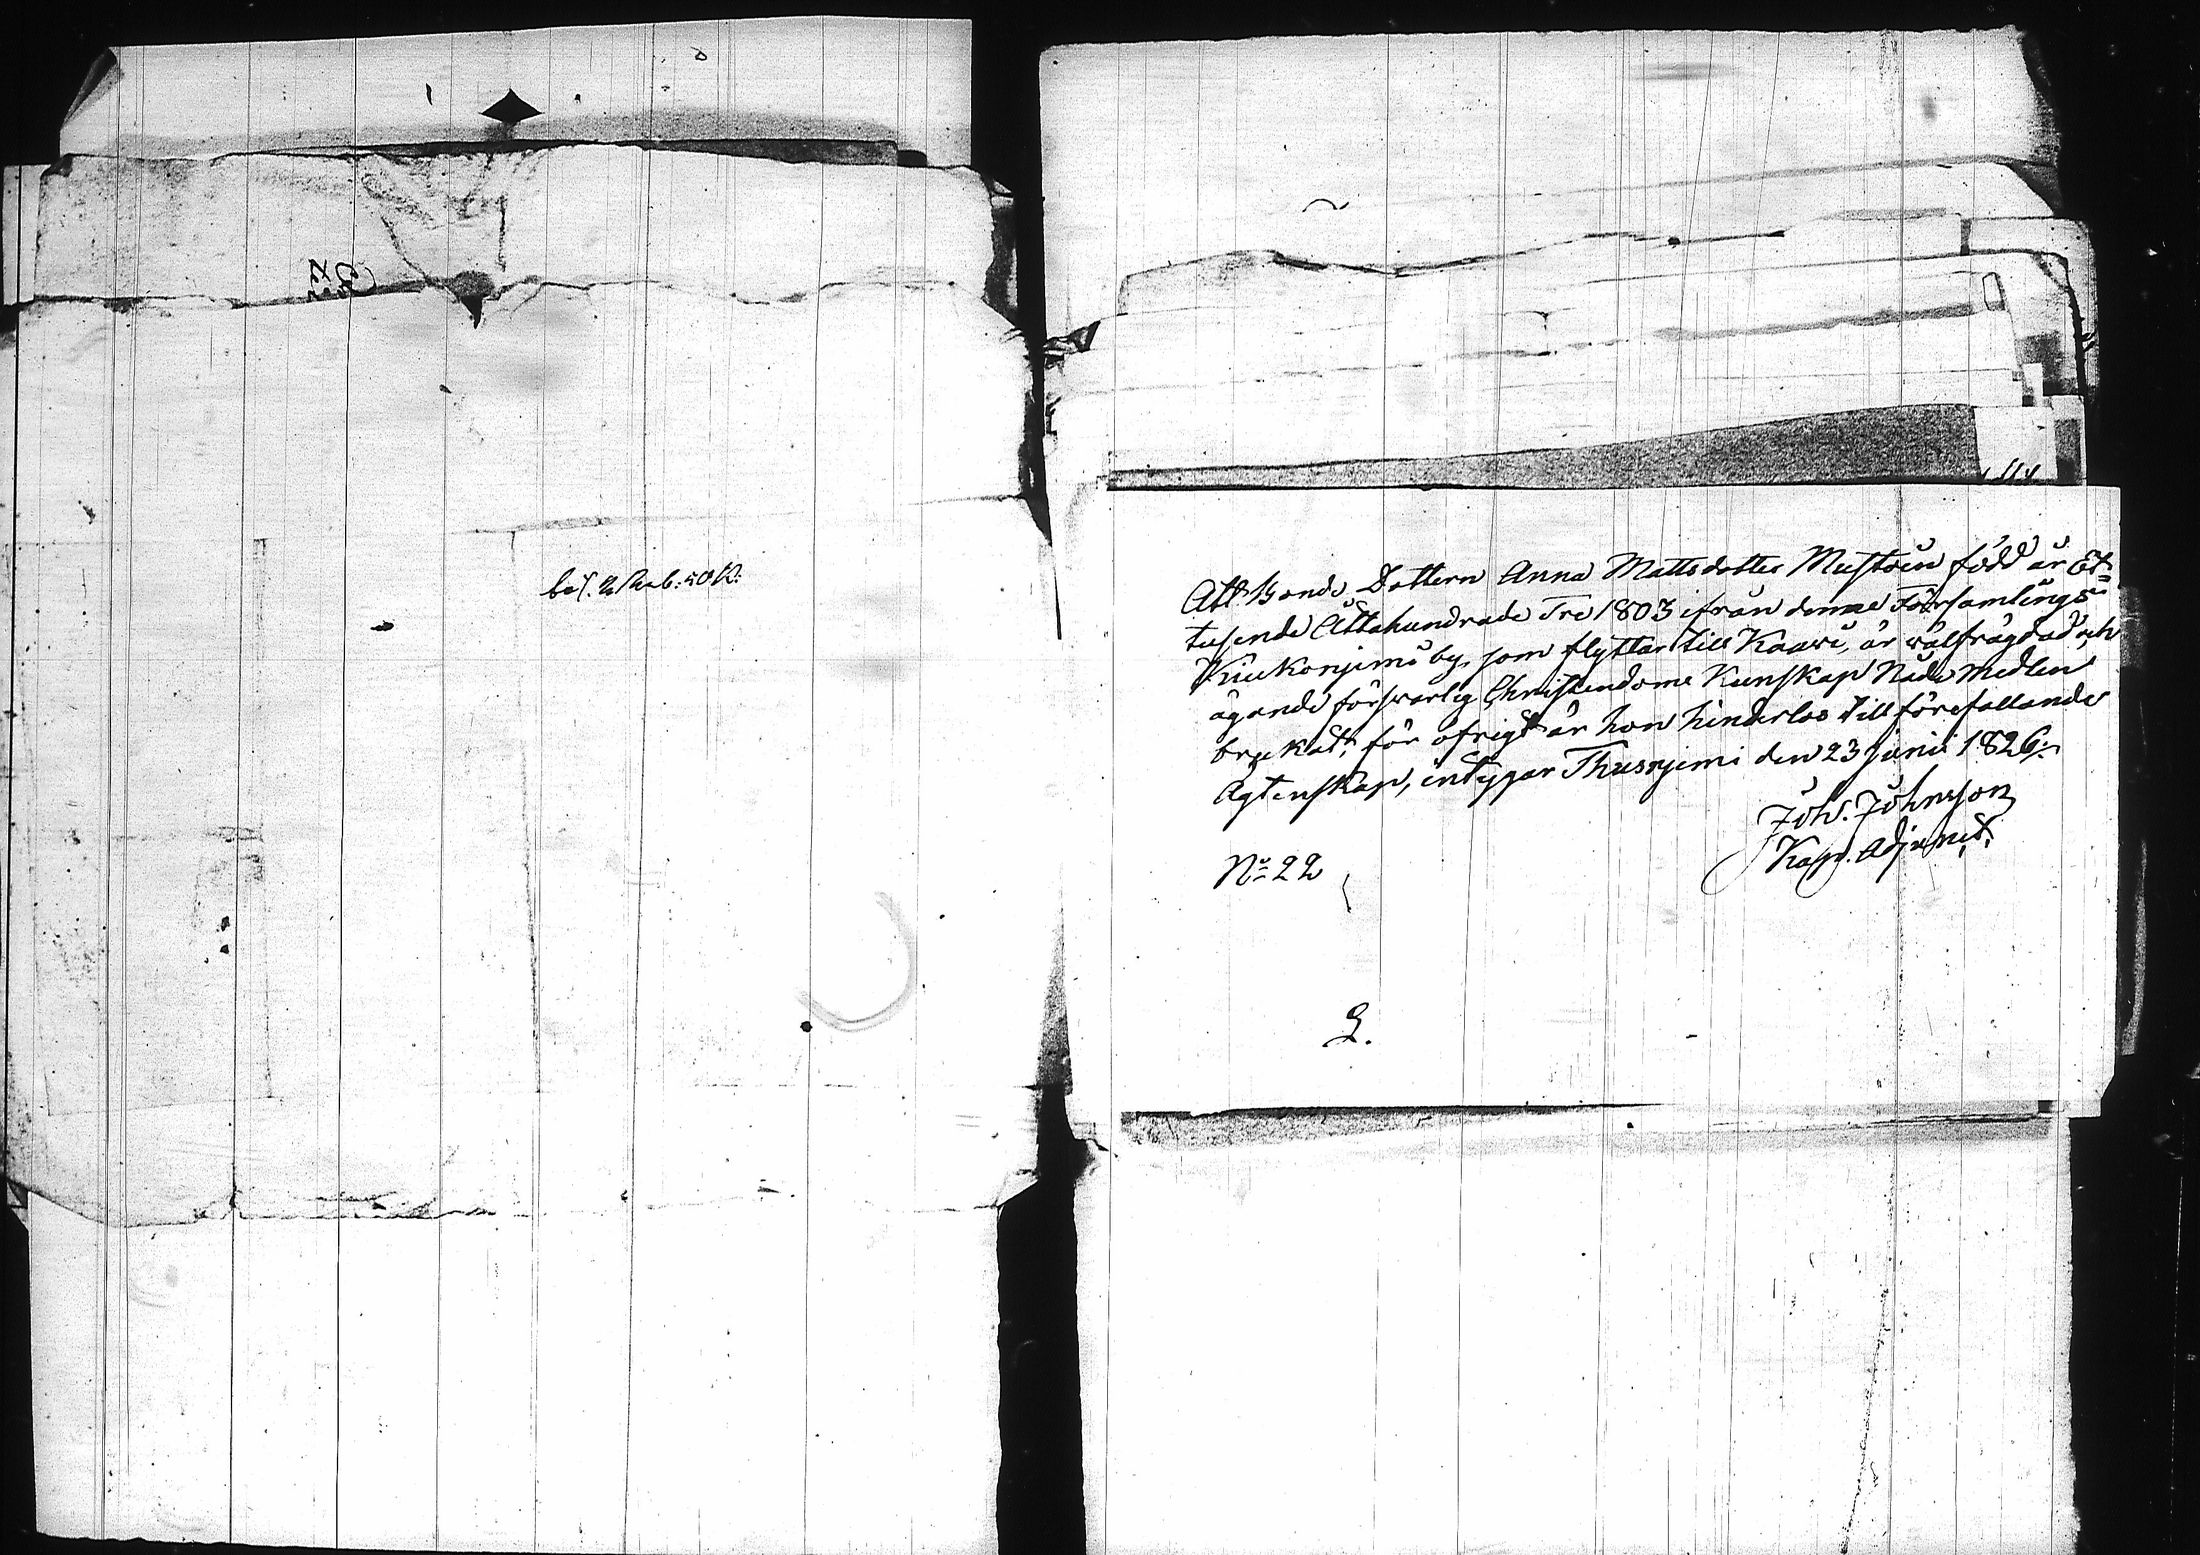 bet. 2 Rub. 50 K:
Att Bonde Dottern Anna Mattsdotter Mustoin född år Et=
tusende Åttahundrade Tre 1803 ifrån denne Församlings
Kiukonjemi by, som flyttar till Kaavi, är välfrägdad, och
ägande försvarlig Christendoms Kunskap Nåde Medlen
brukat, för öfrigt är hon hinderlös till förefallande
Ägtenskap, intygar Thusnjemi den 23 junii 1826.
Joh. Johnsson
Kap. Adjunct.
No 22
2.